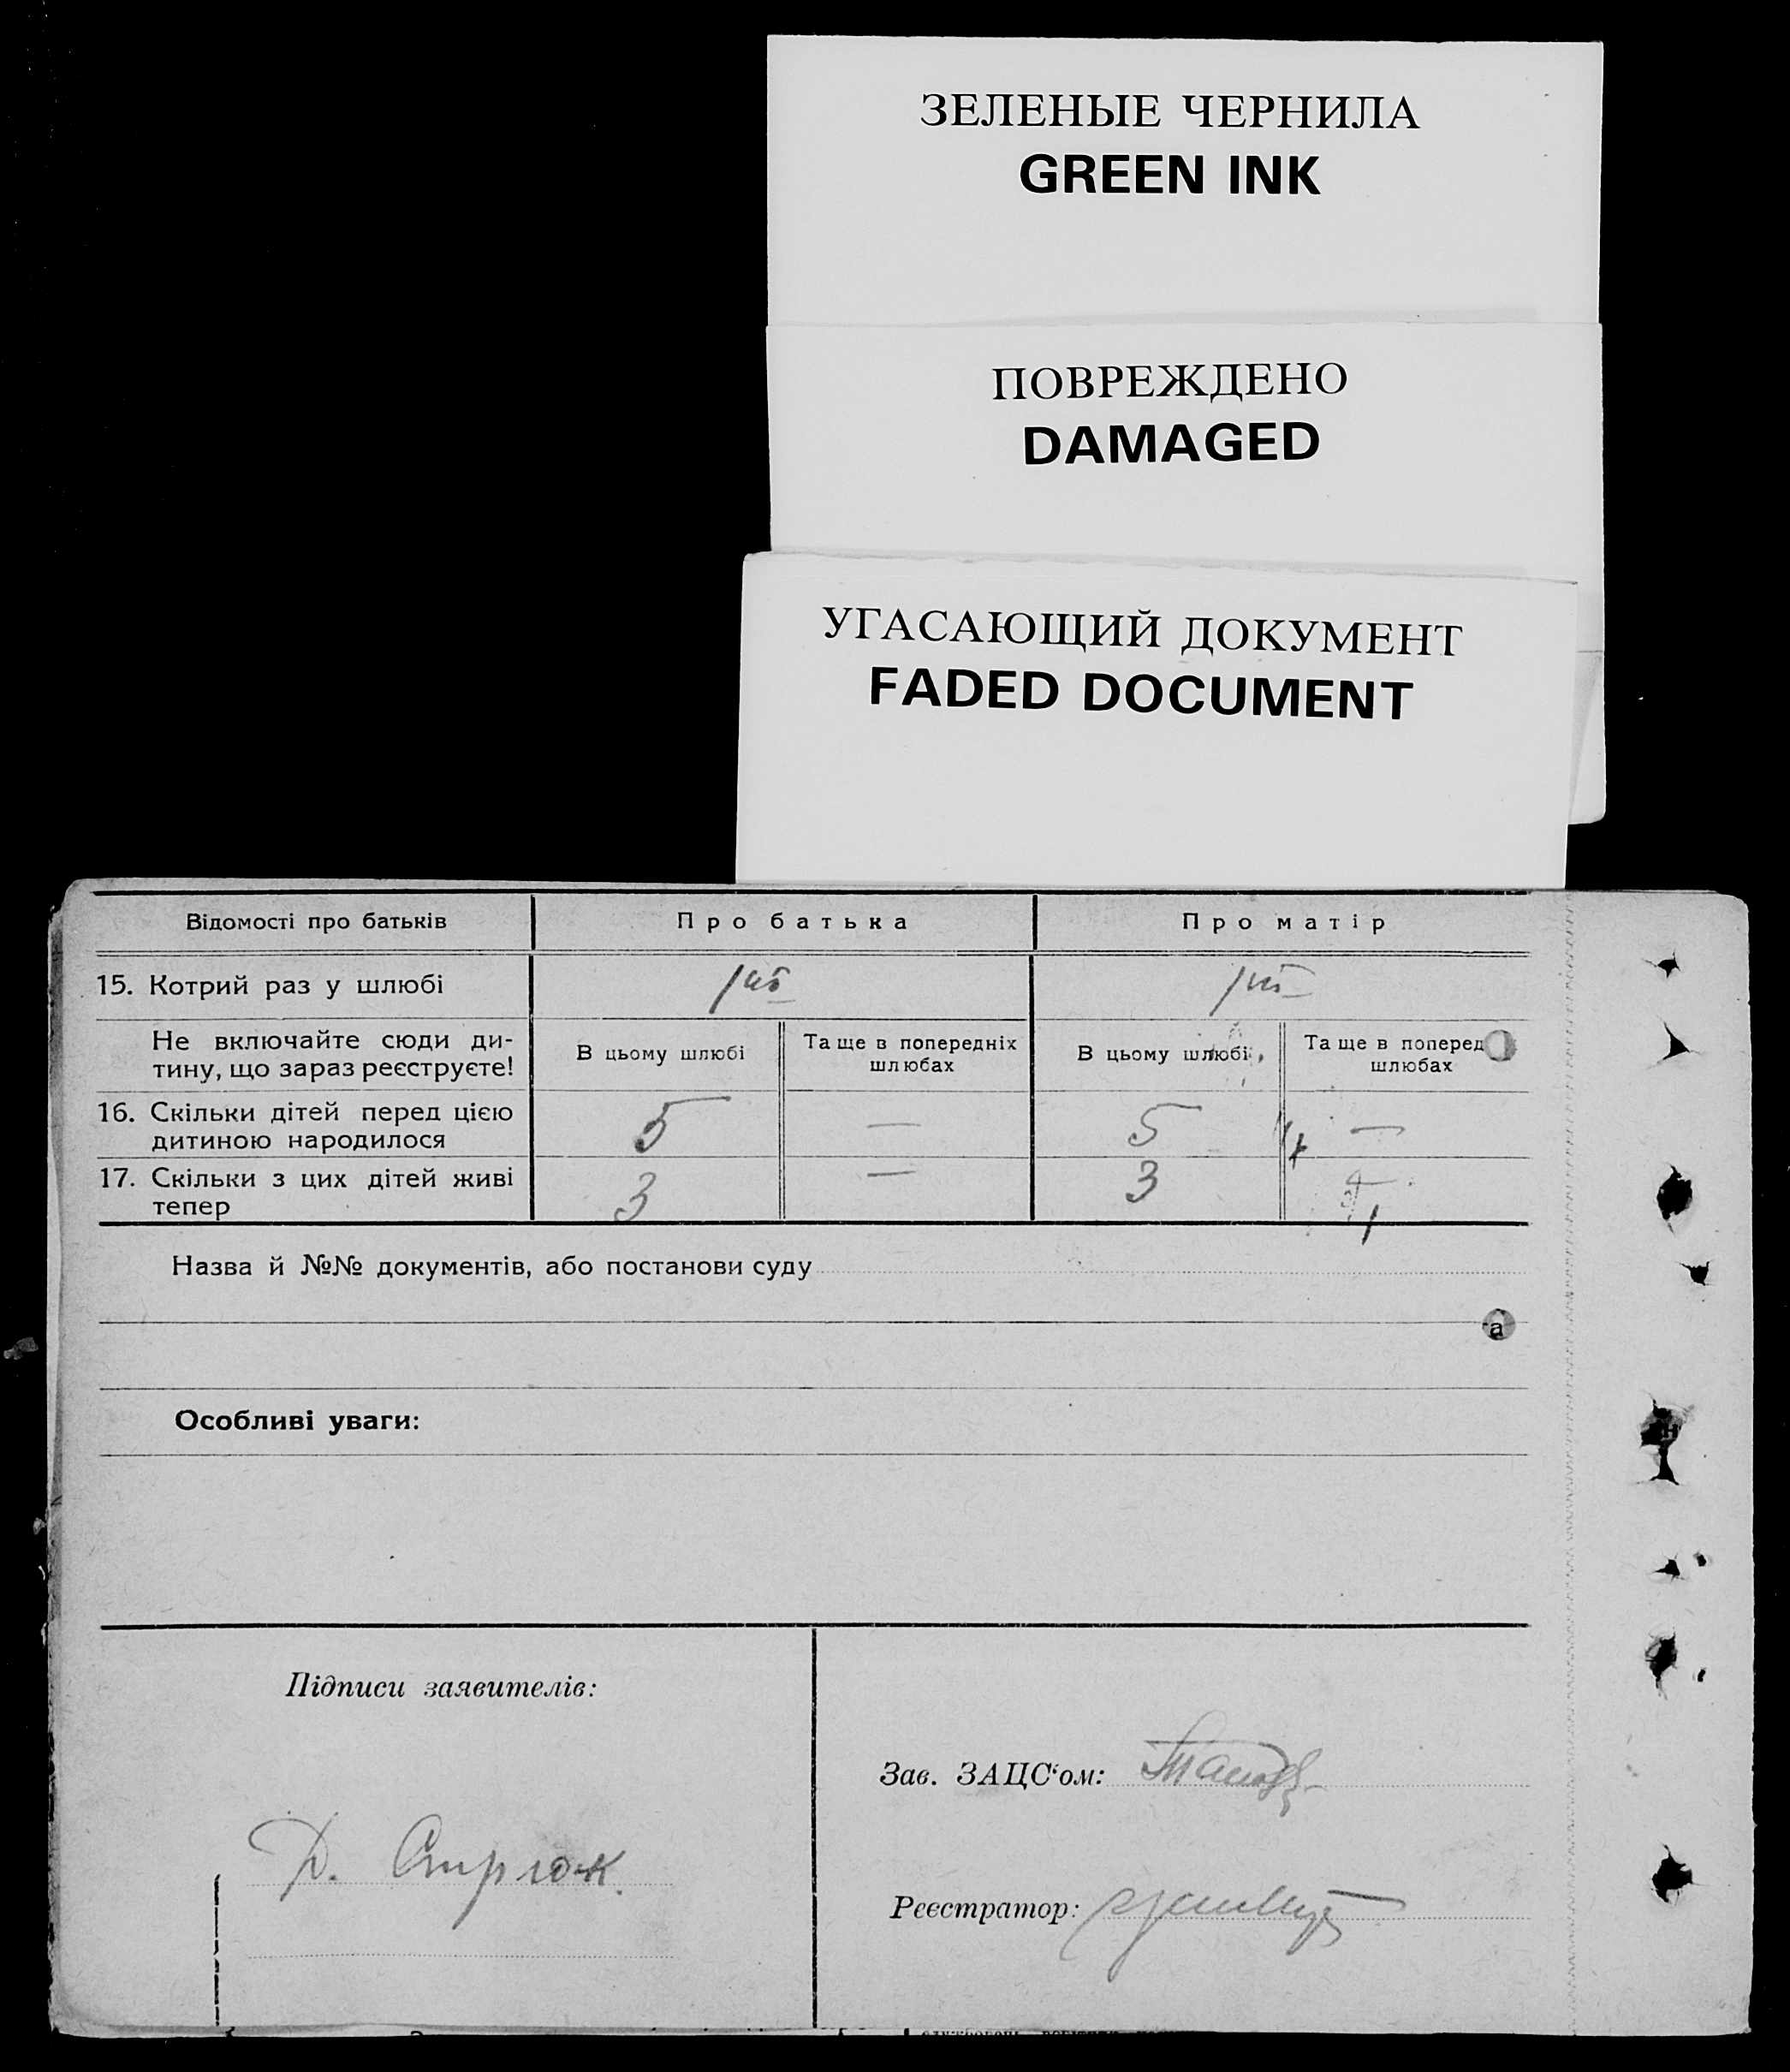 ЗЕЛЕНЫЕ ЧЕРНИЛА
GREEN INK
ПОВРЕЖДЕНО
DAMAGED
УГАСАЮЩИЙ ДОКУМЕНТ
FADED DOCUMENT
Відомості про батьків Про батька Про матір
15. Котрий раз у шлюбі
Не включайте сюди ди-
тину, що зараз реєструєте!
В цьому шлюбі
Та ще в попередніх
шлюбах
В цьому шлюбі
Та ще в поперед
шлюбах
16. Скільки дітей перед цією
дитиною народилося
5 — 5 —
17. Скільки з цих дітей живі
тепер
3 — 3
Назва й №№ документів, або постанови суду
Особливі уваги:
Підписи заявителів:
Зав. ЗАЦС‘ом:
Реєстратор: